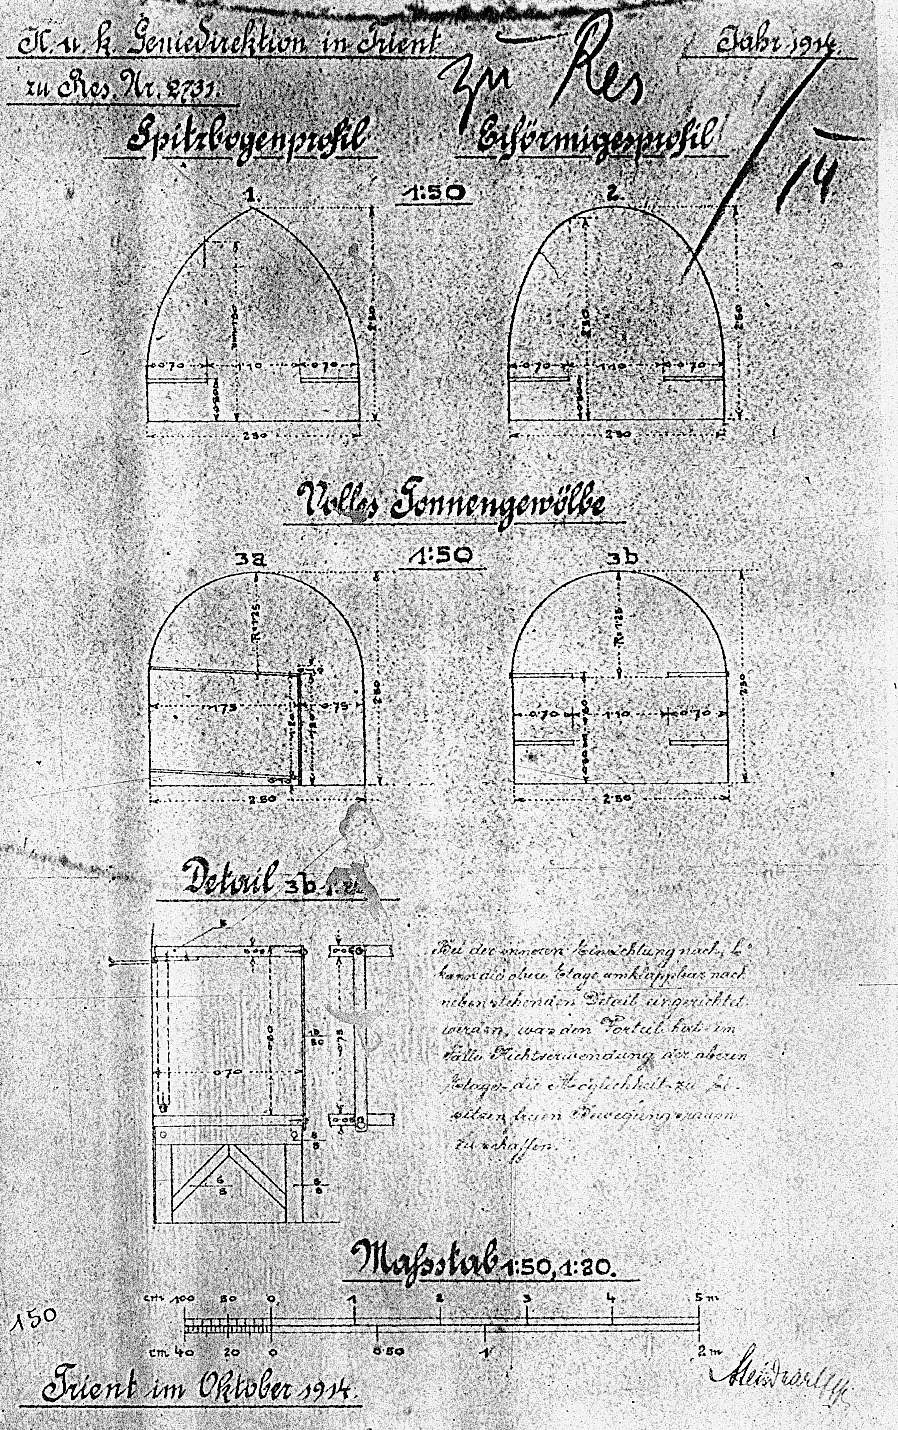 K. u. k. Geniedirektion in Trient
Jahr 1914.
zu Res. Nr. 2731.
zu Res
14
Spitzbogenprofil
Eiförmigesprofil
1.
1:50
2.
2·50
2·50
0·70 1·10 0·70
0·70 1·10 0·70
2·50
2·50
Volles Tonnengewölbe
3a
1:50
3b
R=1·25
R=1·25
2·50
2·50
1·75 0·75
0·70 1·10 0·70
2·50
2·50
Detail 3b
Bei der inneren Einrichtung nach
kann die obere Etage umklappbar nach
nebenstehenden Detail eingerichtet
werden, was den Vorteil hat im
Falle Nichtverwendung der oberen
Etage die Möglichkeit zu
sitzen freien Bewegungsraum
zu schaffen.
0·70
Massstab 1:50, 1:20.
cm 100 50 0 1 2 3 4 5 m
cm 40 20 0 0·50 1 2 m
150
Trient im Oktober 1914.